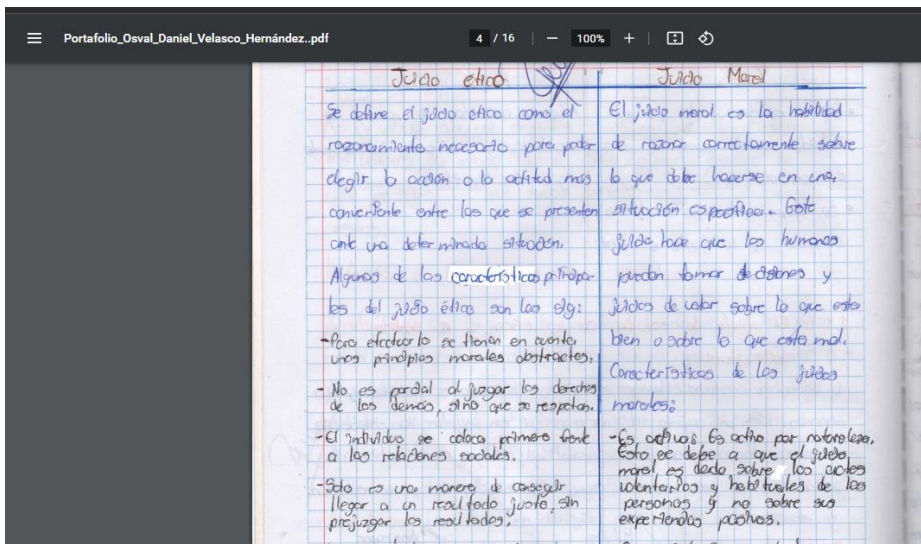 Portafolio_Osval_Daniel_Velasco_Hernández..pdf
4 / 16
100%
Juicio etico
Se define el juicio etico como el
razonamiento necesario para poder
elegir la acción o la actitud mas
conveniente entre las que se presenten
ante una determinada situación.
Algunas de las características principa-
les del juicio ético son las sig:
-Para efectuarlo se tienen en cuenta
unos principios morales abstractos.
- No es parcial al juzgar los derechos
de los demás, sino que se respetan.
-El individuo se coloca primero frente
a las relaciones sociales.
-Solo es una manera de conseguir
llegar a un resultado justo, sin
prejuzgar los resultados.
Juicio Moral
El juicio moral es la habilidad
de razonar correctamente sobre
lo que debe hacerse en una
situación específica. Este
juicio hace que los humanos
puedan tomar decisiones y
juicios de valor sobre lo que esta
bien o sobre lo que esta mal.
Características de los juicios
morales:
-Es activos Es activo por naturaleza.
Esto se debe a que el juicio
moral es dado sobre los actos
voluntarios y habituales de las
personas y no sobre sus
experiencias pasivas.